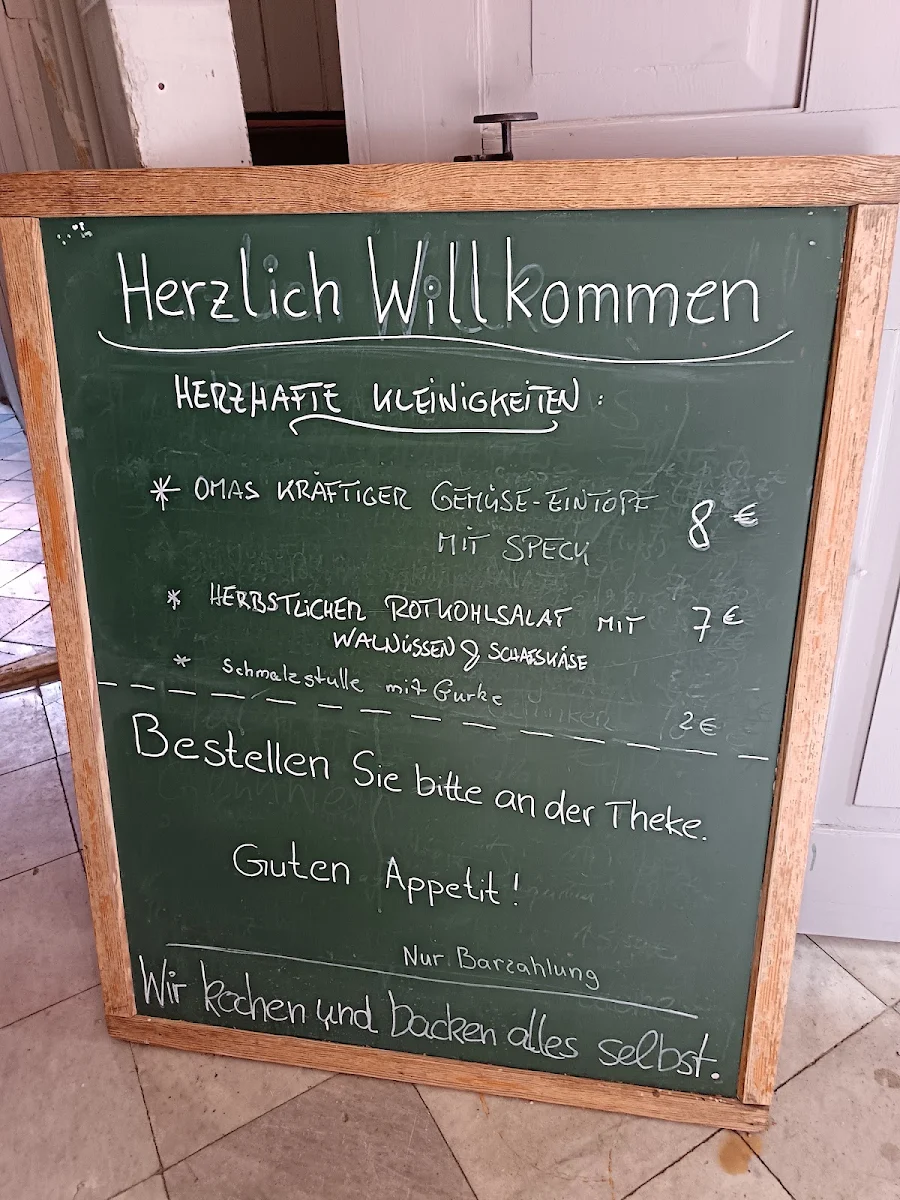 Herzlich Willkommen
HERZHAFTE KLEINIGKEITEN:
* OMAS KRÄFTIGER GEMÜSE-EINTOPF
MIT SPECK 8 €
* HERBSTLICHER ROTKOHLSALAT MIT 7 €
WALNÜSSEN & SCHAFSKÄSE
* Schmalzstulle mit Gurke 2 €
Bestellen Sie bitte an der Theke.
Guten Appetit!
Nur Barzahlung
Wir kochen und backen alles selbst.